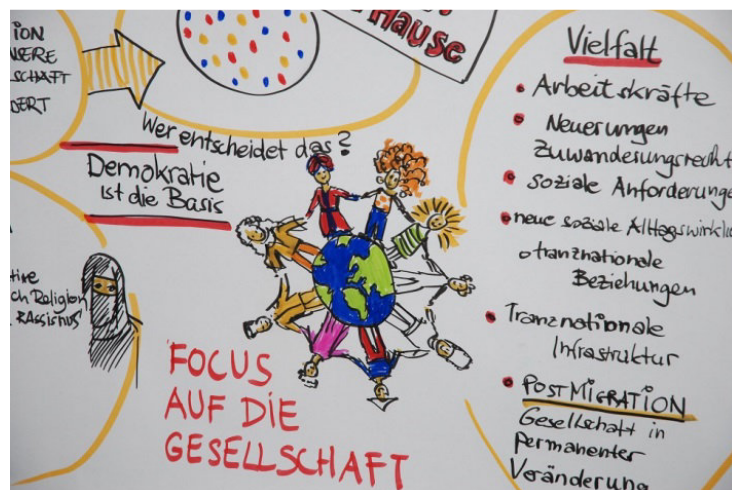 HAUSE
NSERE
DERT
Wer entscheidet das?
Demokratie
ist die Basis
Religion
FOCUS
AUF DIE
GESELLSCHAFT
Vielfalt
Arbeitskräfte
Neuerungen
Zuwanderungsrecht
soziale Anforderunge
neue soziale Alltagswirklic
tranznationale
Beziehungen
Tranznationale
Infrastruktur
POSTMIGRATION
Gesellschaft in
permanenter
Veränderung